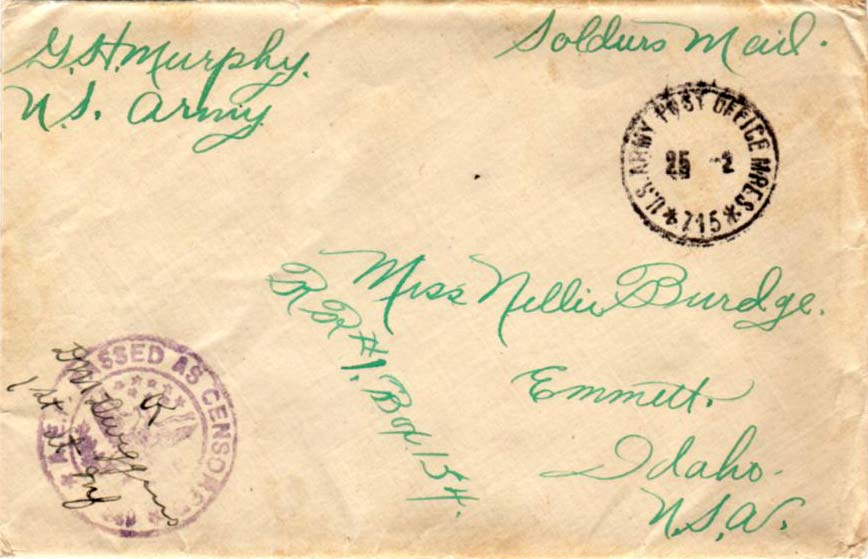 G.H. Murphy.
U.S. Army
Soldiers Mail.
U.S. ARMY POST OFFICE M.P.E.S.
25 -2
* 715 *
Miss Nellie Burdge.
RR #1, Box 154.
Emmett.
Idaho.
U.S.A.
A.E. PASSED AS CENSORED
1st Lt Inf